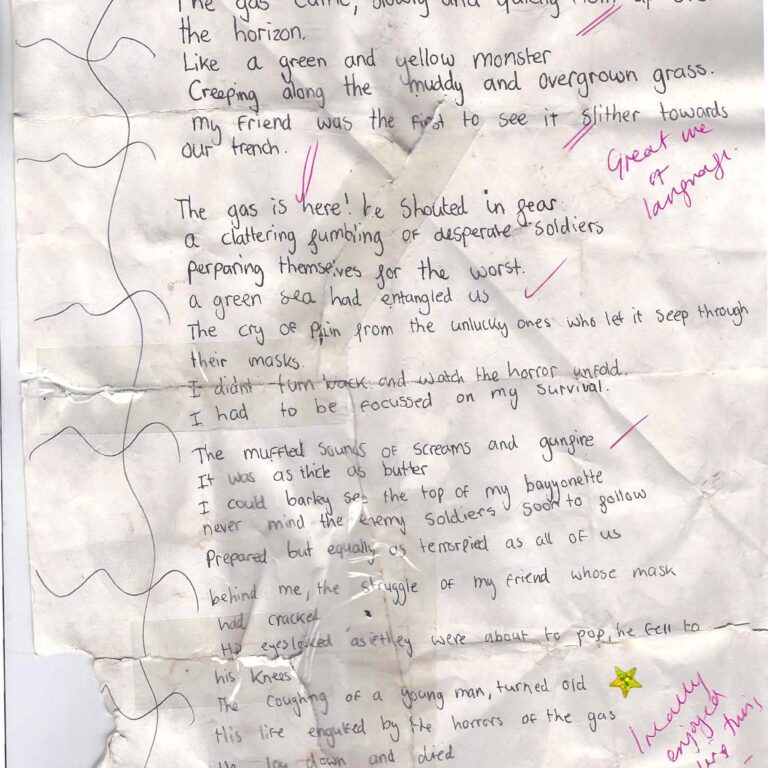 The gas came, slowly and quickly from up over
the horizon.
Like a green and yellow monster
Creeping along the muddy and overgrown grass.
my friend was the first to see it slither towards
our trench.
Great use
of
language.
The gas is here! he shouted in fear
a clattering fumbling of desperate soldiers
perparing themselves for the worst.
a green sea had entangled us
The cry of pain from the unlucky ones who let it seep through
their masks.
I didnt turn back and watch the horror unfold.
I had to be focussed on my survival.
The muffled sounds of screams and gunfire
It was as thick as butter
I could barley see the top of my bayyonette
never mind the enemy soldiers soon to follow
Prepared but equally as terrorpied as all of us
behind me, the struggle of my friend whose mask
had cracked
His eyes looked as if they were about to pop, he fell to
his knees
The coughing of a young man, turned old
His life engulfed by the horrors of the gas
He lay down and died
I really
enjoyed
this